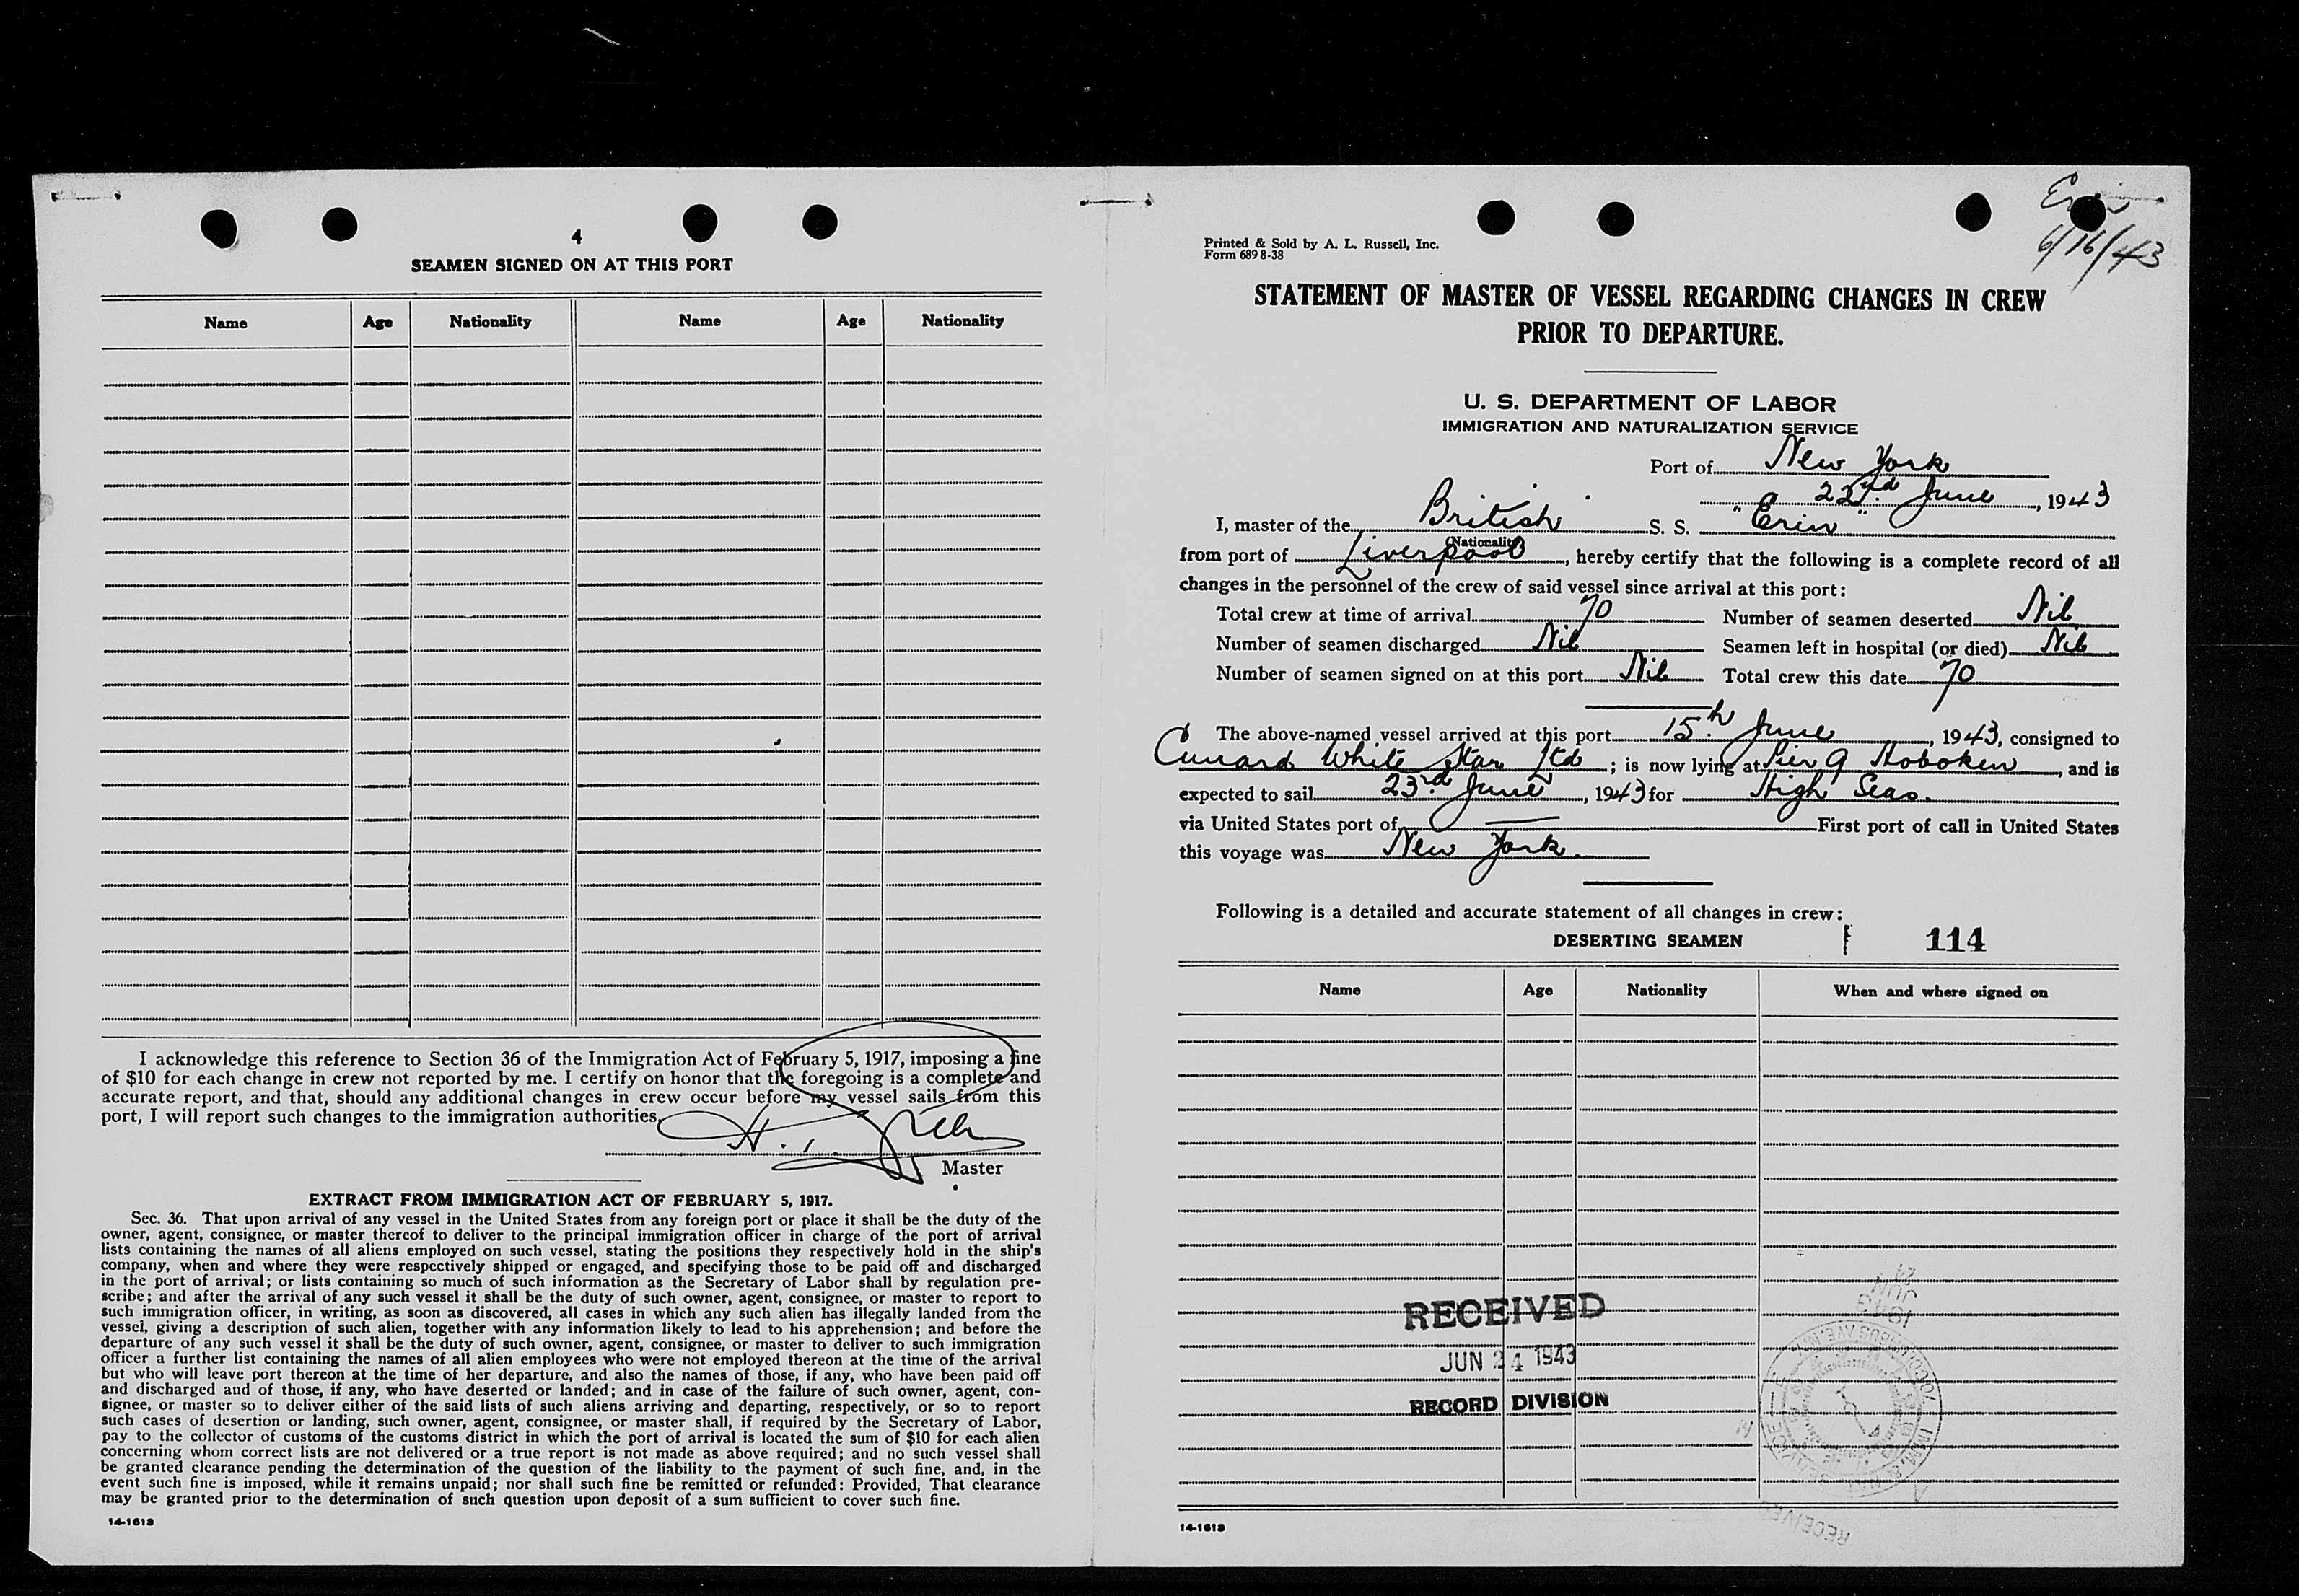 4
SEAMEN SIGNED ON AT THIS PORT
Name Age Nationality Name Age Nationality
I acknowledge this reference to Section 36 of the Immigration Act of February 5, 1917, imposing a fine
of $10 for each change in crew not reported by me. I certify on honor that the foregoing is a complete and
accurate report, and that, should any additional changes in crew occur before my vessel sails from this
port, I will report such changes to the immigration authorities.
Master
EXTRACT FROM IMMIGRATION ACT OF FEBRUARY 5, 1917.
Sec. 36. That upon arrival of any vessel in the United States from any foreign port or place it shall be the duty of the
owner, agent, consignee, or master thereof to deliver to the principal immigration officer in charge of the port of arrival
lists containing the names of all aliens employed on such vessel, stating the positions they respectively hold in the ship's
company, when and where they were respectively shipped or engaged, and specifying those to be paid off and discharged
in the port of arrival; or lists containing so much of such information as the Secretary of Labor shall by regulation pre-
scribe; and after the arrival of any such vessel it shall be the duty of such owner, agent, consignee, or master to report to
such immigration officer, in writing, as soon as discovered, all cases in which any such alien has illegally landed from the
vessel, giving a description of such alien, together with any information likely to lead to his apprehension; and before the
departure of any such vessel it shall be the duty of such owner, agent, consignee, or master to deliver to such immigration
officer a further list containing the names of all alien employees who were not employed thereon at the time of the arrival
but who will leave port thereon at the time of her departure, and also the names of those, if any, who have been paid off
and discharged and of those, if any, who have deserted or landed; and in case of the failure of such owner, agent, con-
signee, or master so to deliver either of the said lists of such aliens arriving and departing, respectively, or so to report
such cases of desertion or landing, such owner, agent, consignee, or master shall, if required by the Secretary of Labor,
pay to the collector of customs of the customs district in which the port of arrival is located the sum of $10 for each alien
concerning whom correct lists are not delivered or a true report is not made as above required; and no such vessel shall
be granted clearance pending the determination of the question of the liability to the payment of such fine, and, in the
event such fine is imposed, while it remains unpaid; nor shall such fine be remitted or refunded: Provided, That clearance
may be granted prior to the determination of such question upon deposit of a sum sufficient to cover such fine.
14-1613
Erin
6/16/43
Printed & Sold by A. L. Russell, Inc.
Form 689 8-38
STATEMENT OF MASTER OF VESSEL REGARDING CHANGES IN CREW
PRIOR TO DEPARTURE.
U. S. DEPARTMENT OF LABOR
IMMIGRATION AND NATURALIZATION SERVICE
Port of New York
22nd June, 1943
I, master of the British S. S. "Erin"
(Nationality)
from port of Liverpool, hereby certify that the following is a complete record of all
changes in the personnel of the crew of said vessel since arrival at this port:
Total crew at time of arrival 70 Number of seamen deserted Nil
Number of seamen discharged Nil Seamen left in hospital (or died) Nil
Number of seamen signed on at this port Nil Total crew this date 70
The above-named vessel arrived at this port 15th June, 1943, consigned to
Cunard White Star Ltd; is now lying at Pier 9 Hoboken, and is
expected to sail 23rd June, 1943 for High Seas.
via United States port of — First port of call in United States
this voyage was New York.
Following is a detailed and accurate statement of all changes in crew:
DESERTING SEAMEN 114
Name Age Nationality When and where signed on
RECEIVED
JUN 24 1943
RECORD DIVISION
RECEIVED
14-1613